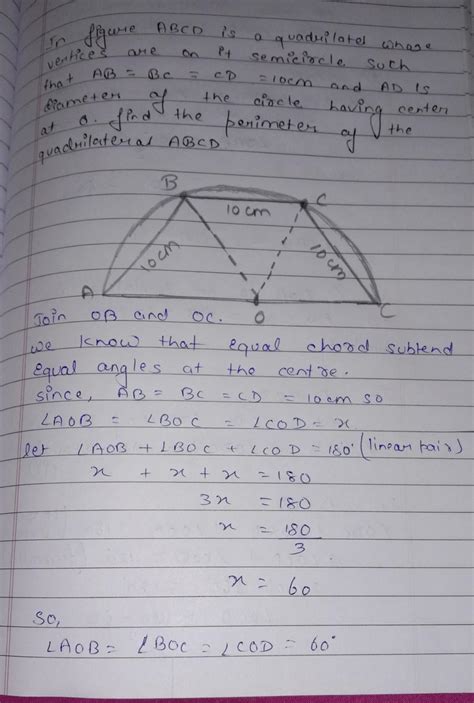 In figure ABCD is a quadrilatel whose
vertices are on it semicircle such
that AB = BC = CD = 10cm and AD is
diameter of the circle having center
at O. find the perimeter of the
quadrilateral ABCD
B
C
10 cm
10cm
10cm
A
O
C
Join OB and OC.
we know that equal chord subtend
equal angles at the centre.
since, AB = BC = CD = 10cm so
∠AOB = ∠BOC = ∠COD = x
let ∠AOB + ∠BOC + ∠COD = 180° (linear pair)
x + x + x = 180
3x = 180
x = 180
3
x = 60
So,
∠AOB = ∠BOC = ∠COD = 60°